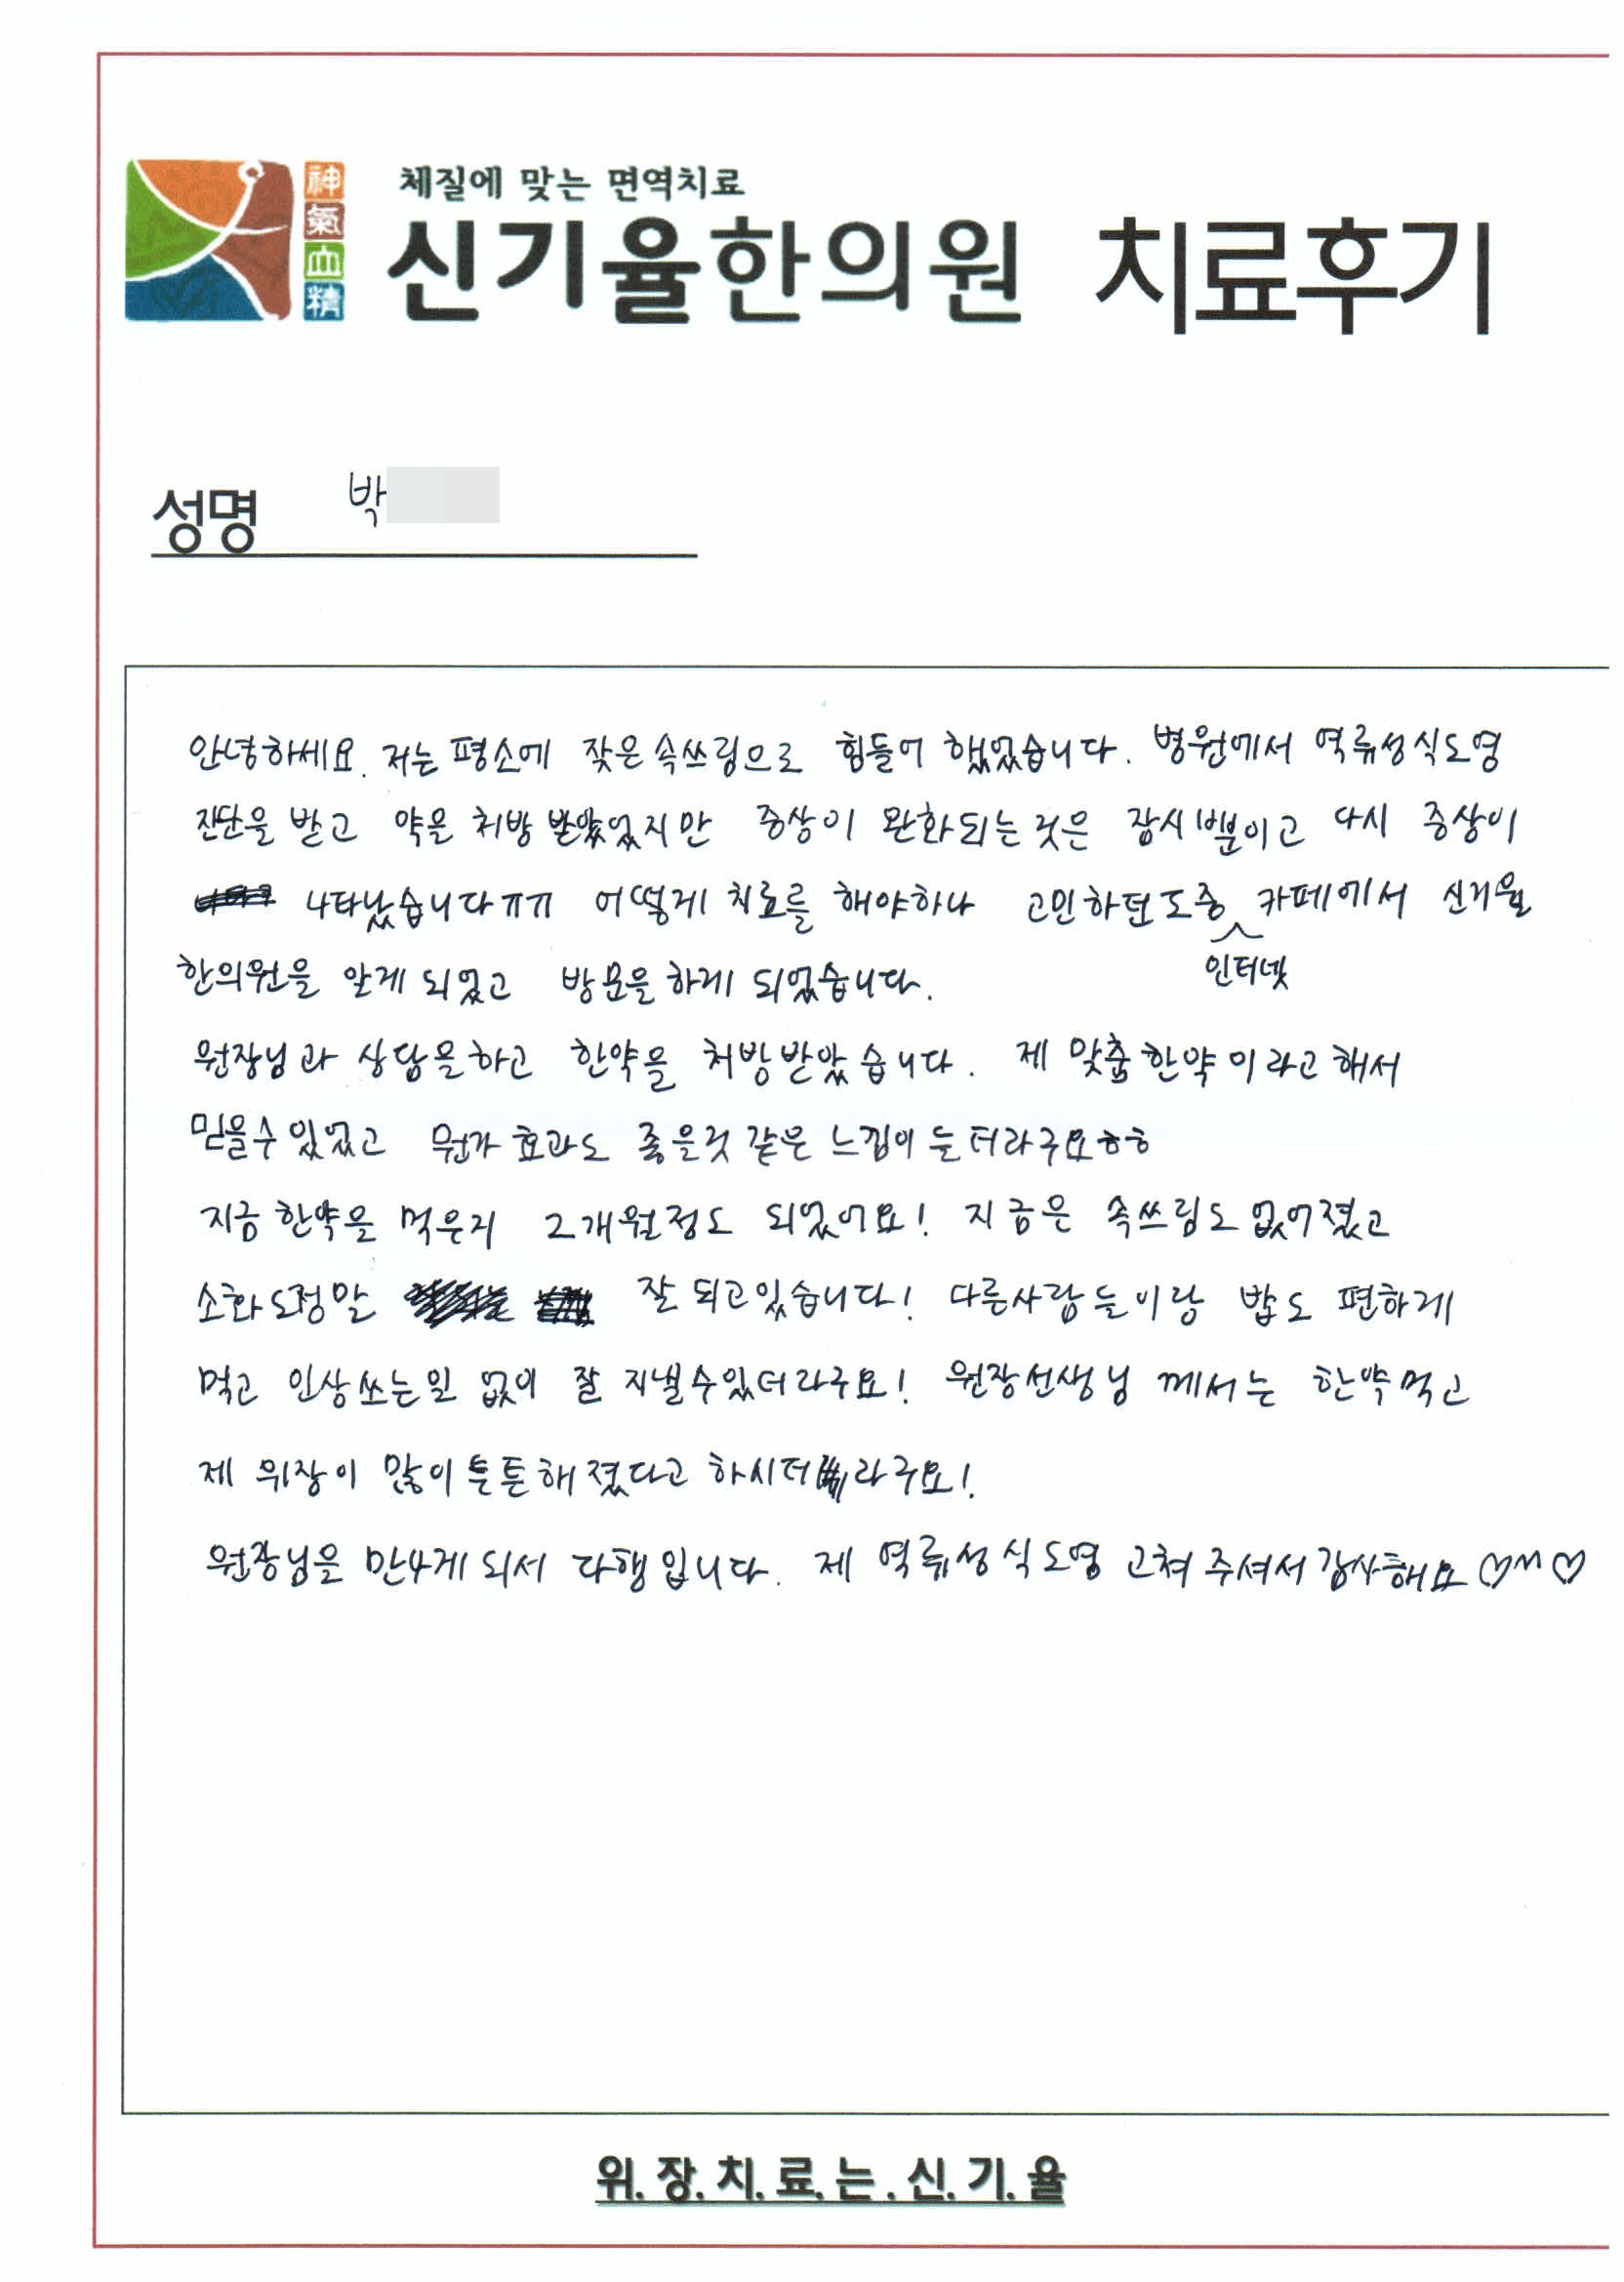 神
氣
血
精
체질에 맞는 면역치료
신기율한의원 치료후기
성명 박
안녕하세요. 저는 평소에 잦은 속쓰림으로 힘들어 했었습니다. 병원에서 역류성식도염
진단을 받고 약을 처방 받았었지만 증상이 완화되는것은 잠시뿐이고 다시 증상이
나타났습니다ㅠㅠ 어떻게 치료를 해야하나 고민하던도중 인터넷 카페에서 신기율
한의원을 알게 되었고 방문을 하게 되었습니다.
원장님과 상담을하고 한약을 처방받았습니다. 제 맞춤한약이라고해서
믿을수있었고 뭔가 효과도 좋을것 같은 느낌이 들더라구요ㅎㅎ
지금 한약을 먹은지 2개월정도 되었어요! 지금은 속쓰림도 없어졌고
소화도정말 잘 되고있습니다! 다른사람들이랑 밥도 편하게
먹고 인상쓰는일 없이 잘 지낼수있더라구요! 원장선생님 께서는 한약먹고
제 위장이 많이튼튼해졌다고 하시더라구요!
원장님을 만나게되서 다행입니다. 제 역류성식도염 고쳐주셔서감사해요♡^^♡
위.장.치.료.는.신.기.율